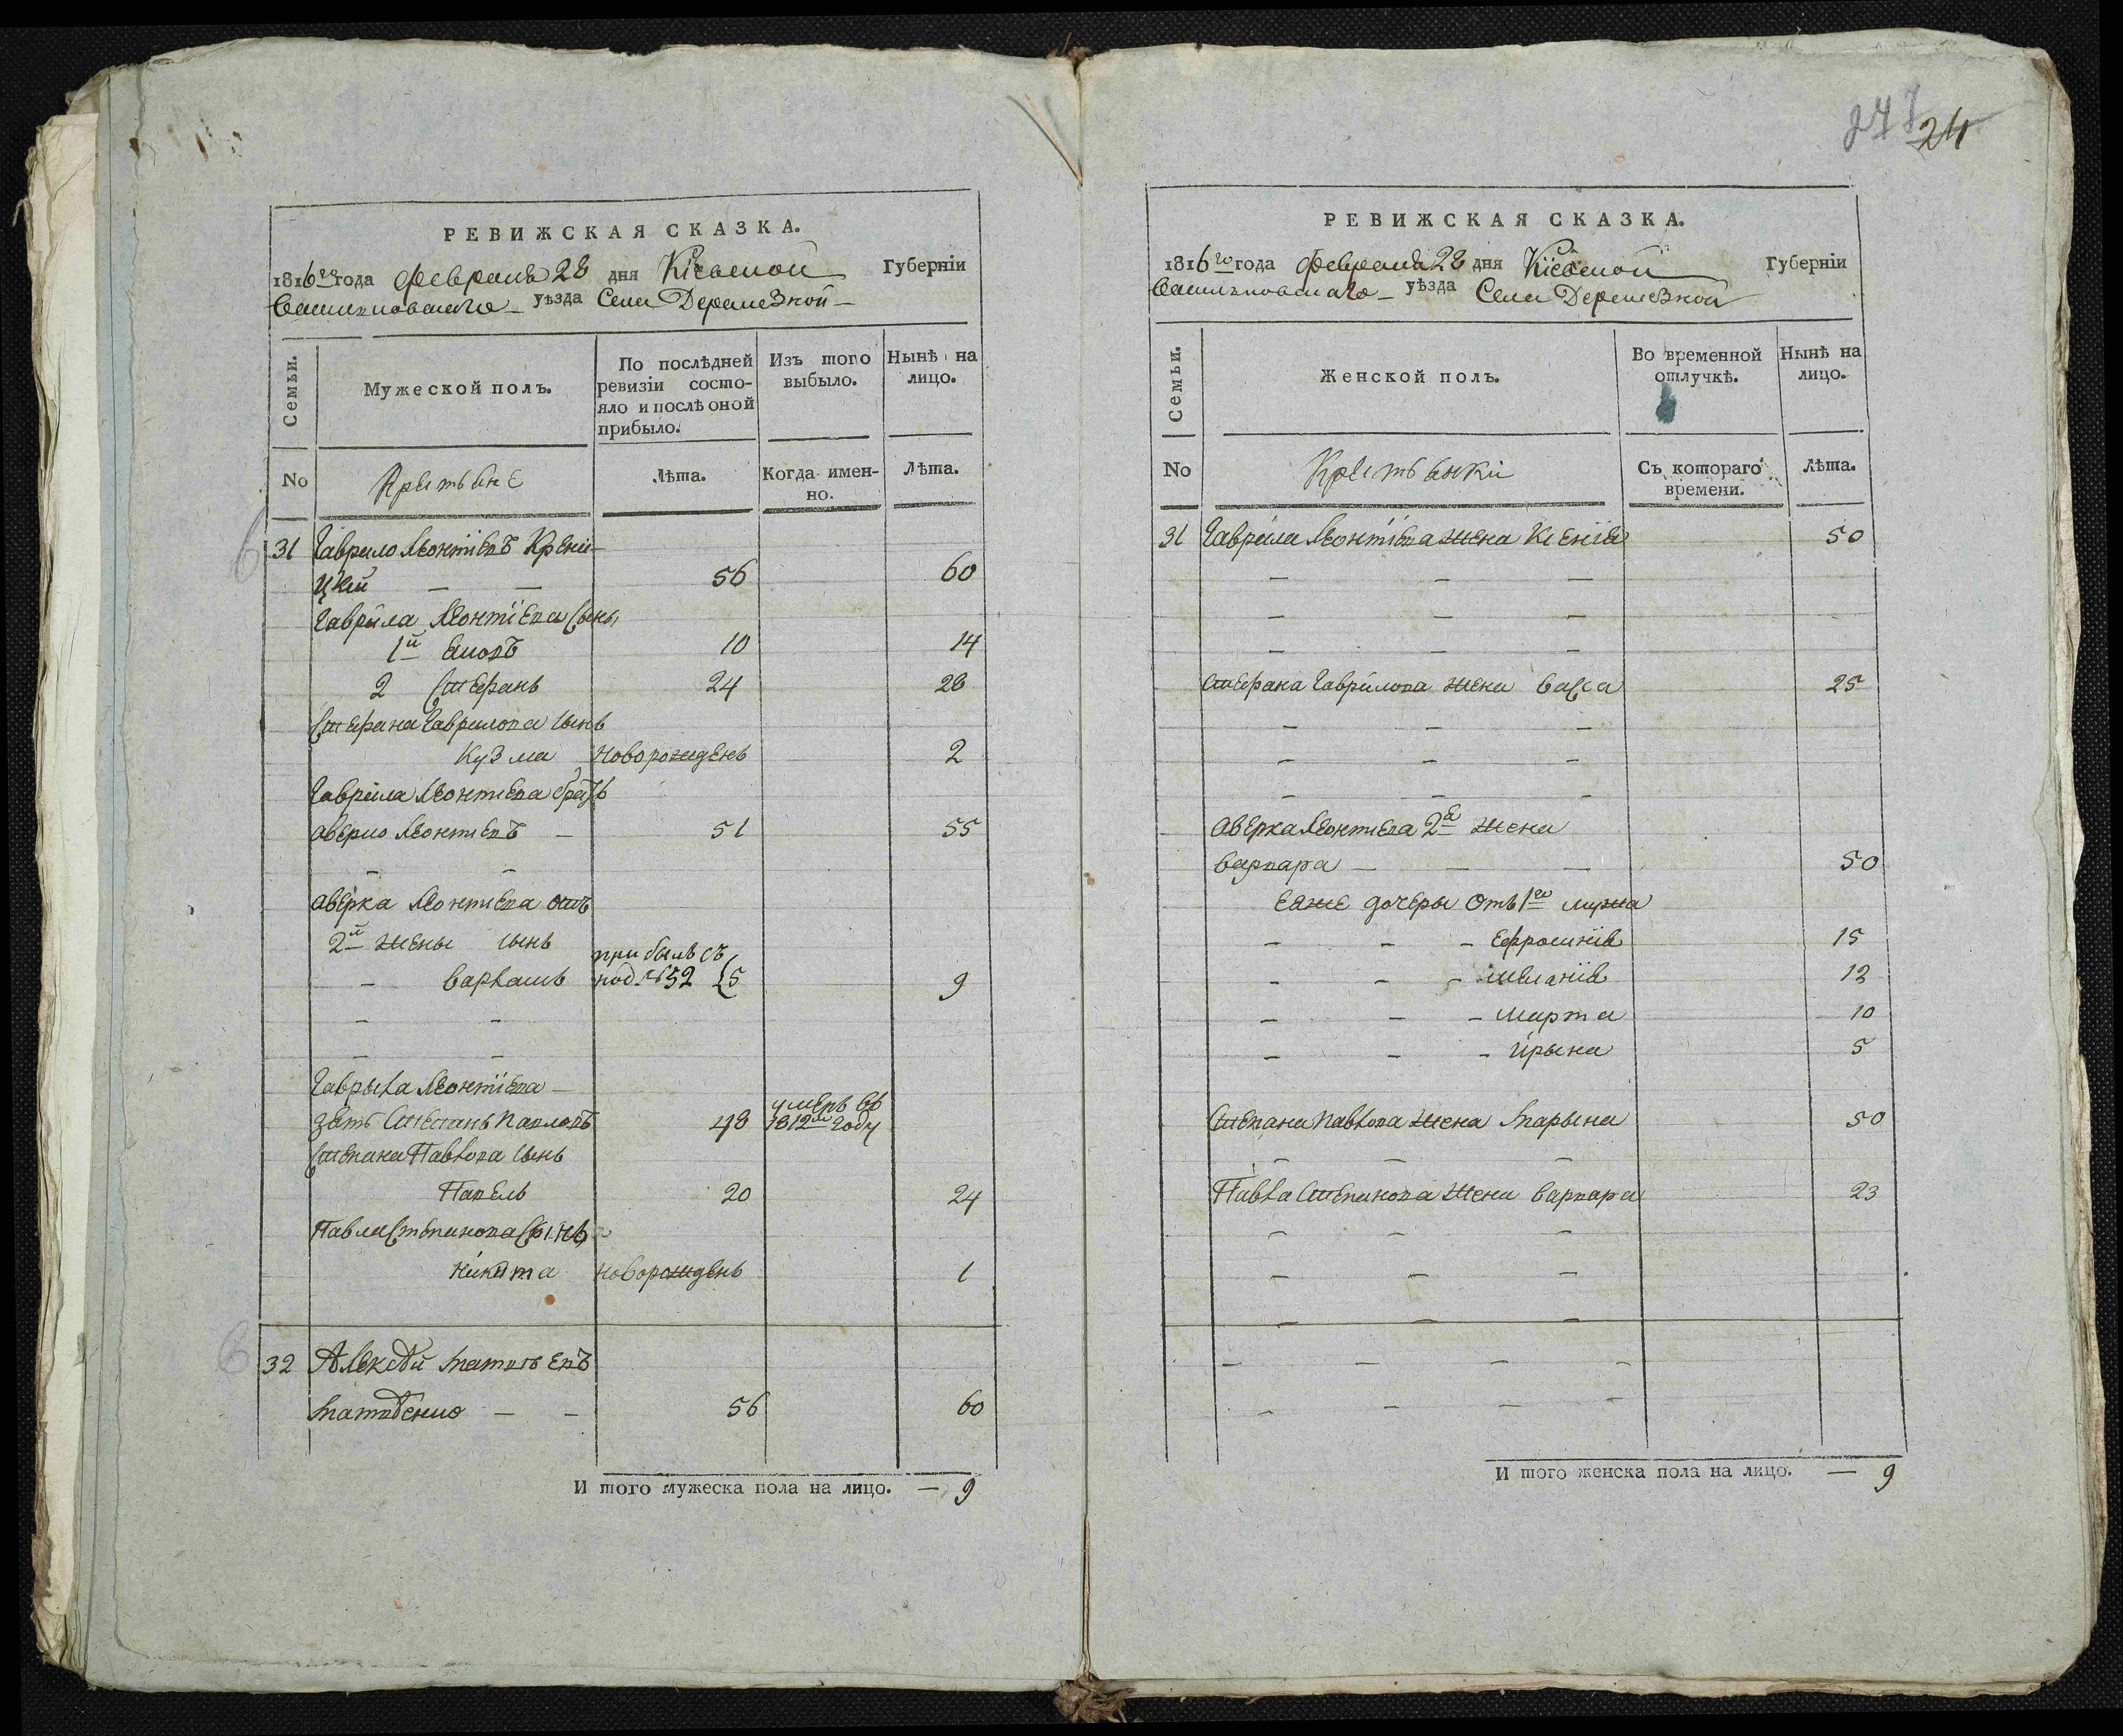 РЕВИЖСКАЯ СКАЗКА.
1816го года февраля 28 дня Кіевской Губерніи
Васильковского уѣзда Села Деремезной
Семьи.
Мужеской полъ.
По послѣдней ревизіи состо-
яло и послѣ оной прибыло.
Изъ того выбыло.
Нынѣ на лицо.
No
Лѣта.
Когда имен-
но.
Лѣта.
31 Гаврило Леонтіевъ Крени-
цкій — — 56 60
Гаврила Леонтіева сынъ
1й Яковъ 10 14
2 Стефанъ 24 28
Стефана Гаврилова сынъ
Кузма новорожденъ 2
Гаврила Леонтиева братъ
Аверко Леонтиевъ — 51 55
Аверка Леонтиева отъ
2й жены сынъ прибылъ съ
Варламъ под №52 5 9
Гаврыла Леонтіева —
зять Степанъ Павловъ 48 умеръ въ 1812м году
Степана Павлова сынъ
Павелъ 20 24
Павла Степанова сынъ
Никита новорожденъ 1
32 Алексѣй Матвѣевъ
Матвѣенко — — 56 60
И того мужеска пола на лицо. — 9
24
РЕВИЖСКАЯ СКАЗКА.
1816го года февраля 28 дня Кіевской Губерніи
Васильковскаго уѣзда Села Деремезной
Семьи.
Женской полъ.
Во временной отлучкѣ.
Нынѣ на лицо.
No
Съ котораго времени.
Лѣта.
31 Гаврила Леонтіева жена Ксенія 50
Стефана Гаврилова жена Васса 25
Аверка Леонтиева 2я жена
Варвара — — — 50
Еяже дочеры отъ 1го мужа
Ефросинія 15
Меланія 12
Марта 10
Ирына 5
Степана Павлова жена Марына 50
Павла Степанова жена Варвара 23
И того женска пола на лицо. — 9